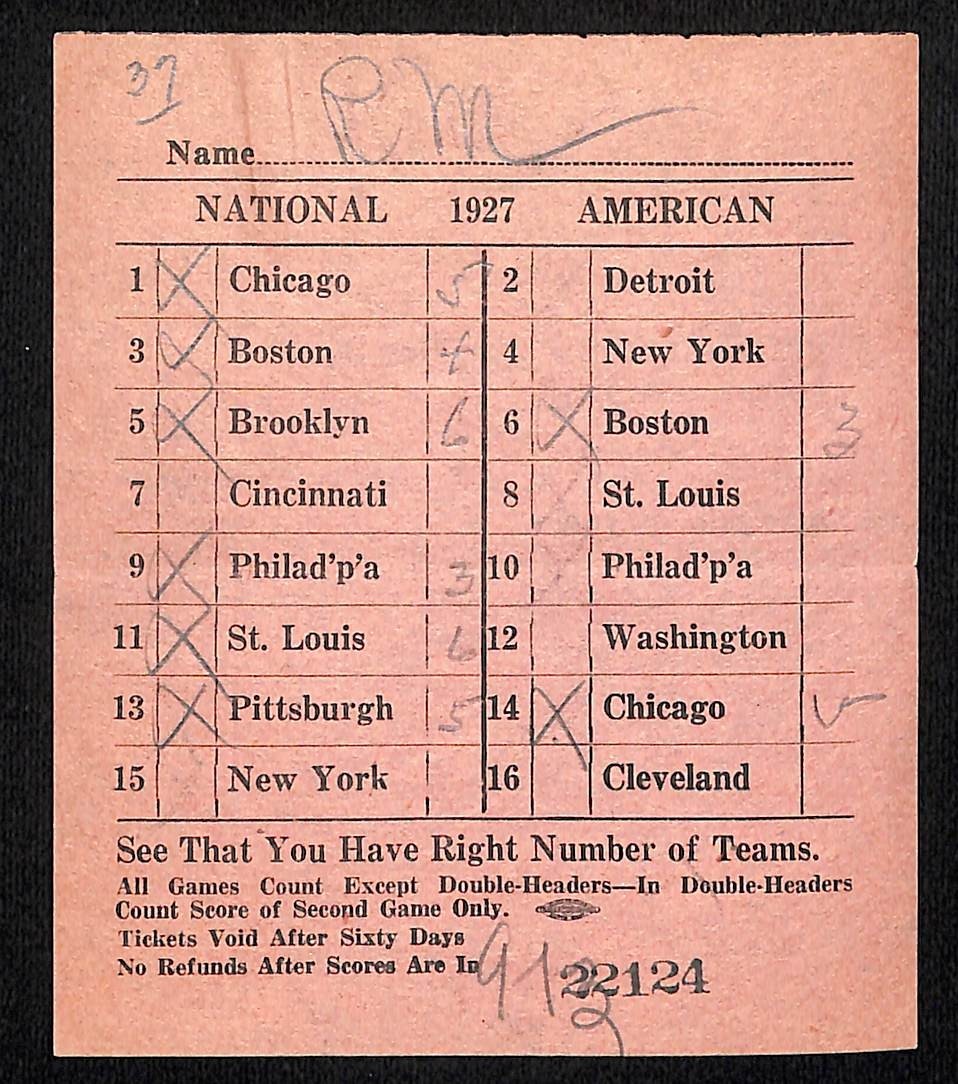 37
RM
Name
NATIONAL 1927 AMERICAN
1 X Chicago 5 2 Detroit
3 X Boston 4 4 New York
5 X Brooklyn 6 6 X Boston 3
7 Cincinnati 8 St. Louis
9 X Philad'p'a 3 10 Philad'p'a
11 X St. Louis 6 12 Washington
13 X Pittsburgh 5 14 X Chicago 5
15 New York 16 Cleveland
See That You Have Right Number of Teams.
All Games Count Except Double-Headers—In Double-Headers
Count Score of Second Game Only.
Tickets Void After Sixty Days
No Refunds After Scores Are In
22124